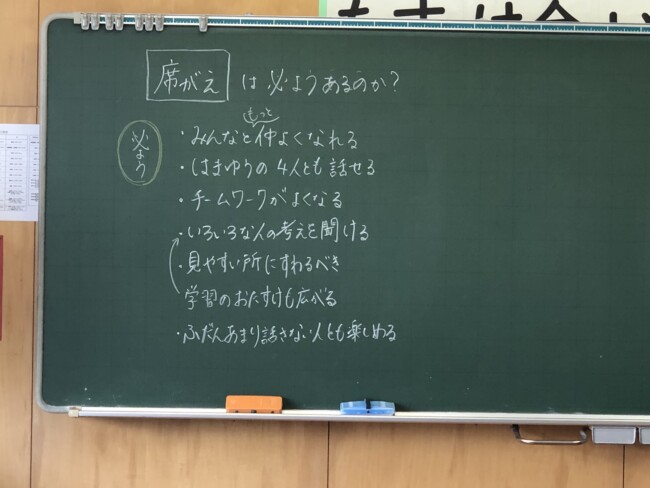 席がえ は 必ようあるのか？
もっと
必よう
・みんなと仲よくなれる
・はまゆうの4人とも話せる
・チームワークがよくなる
・いろいろな人の考えを聞ける
・見やすい所にすわるべき
学習のおたすけも広がる
・ふだんあまり話さない人とも楽しめる